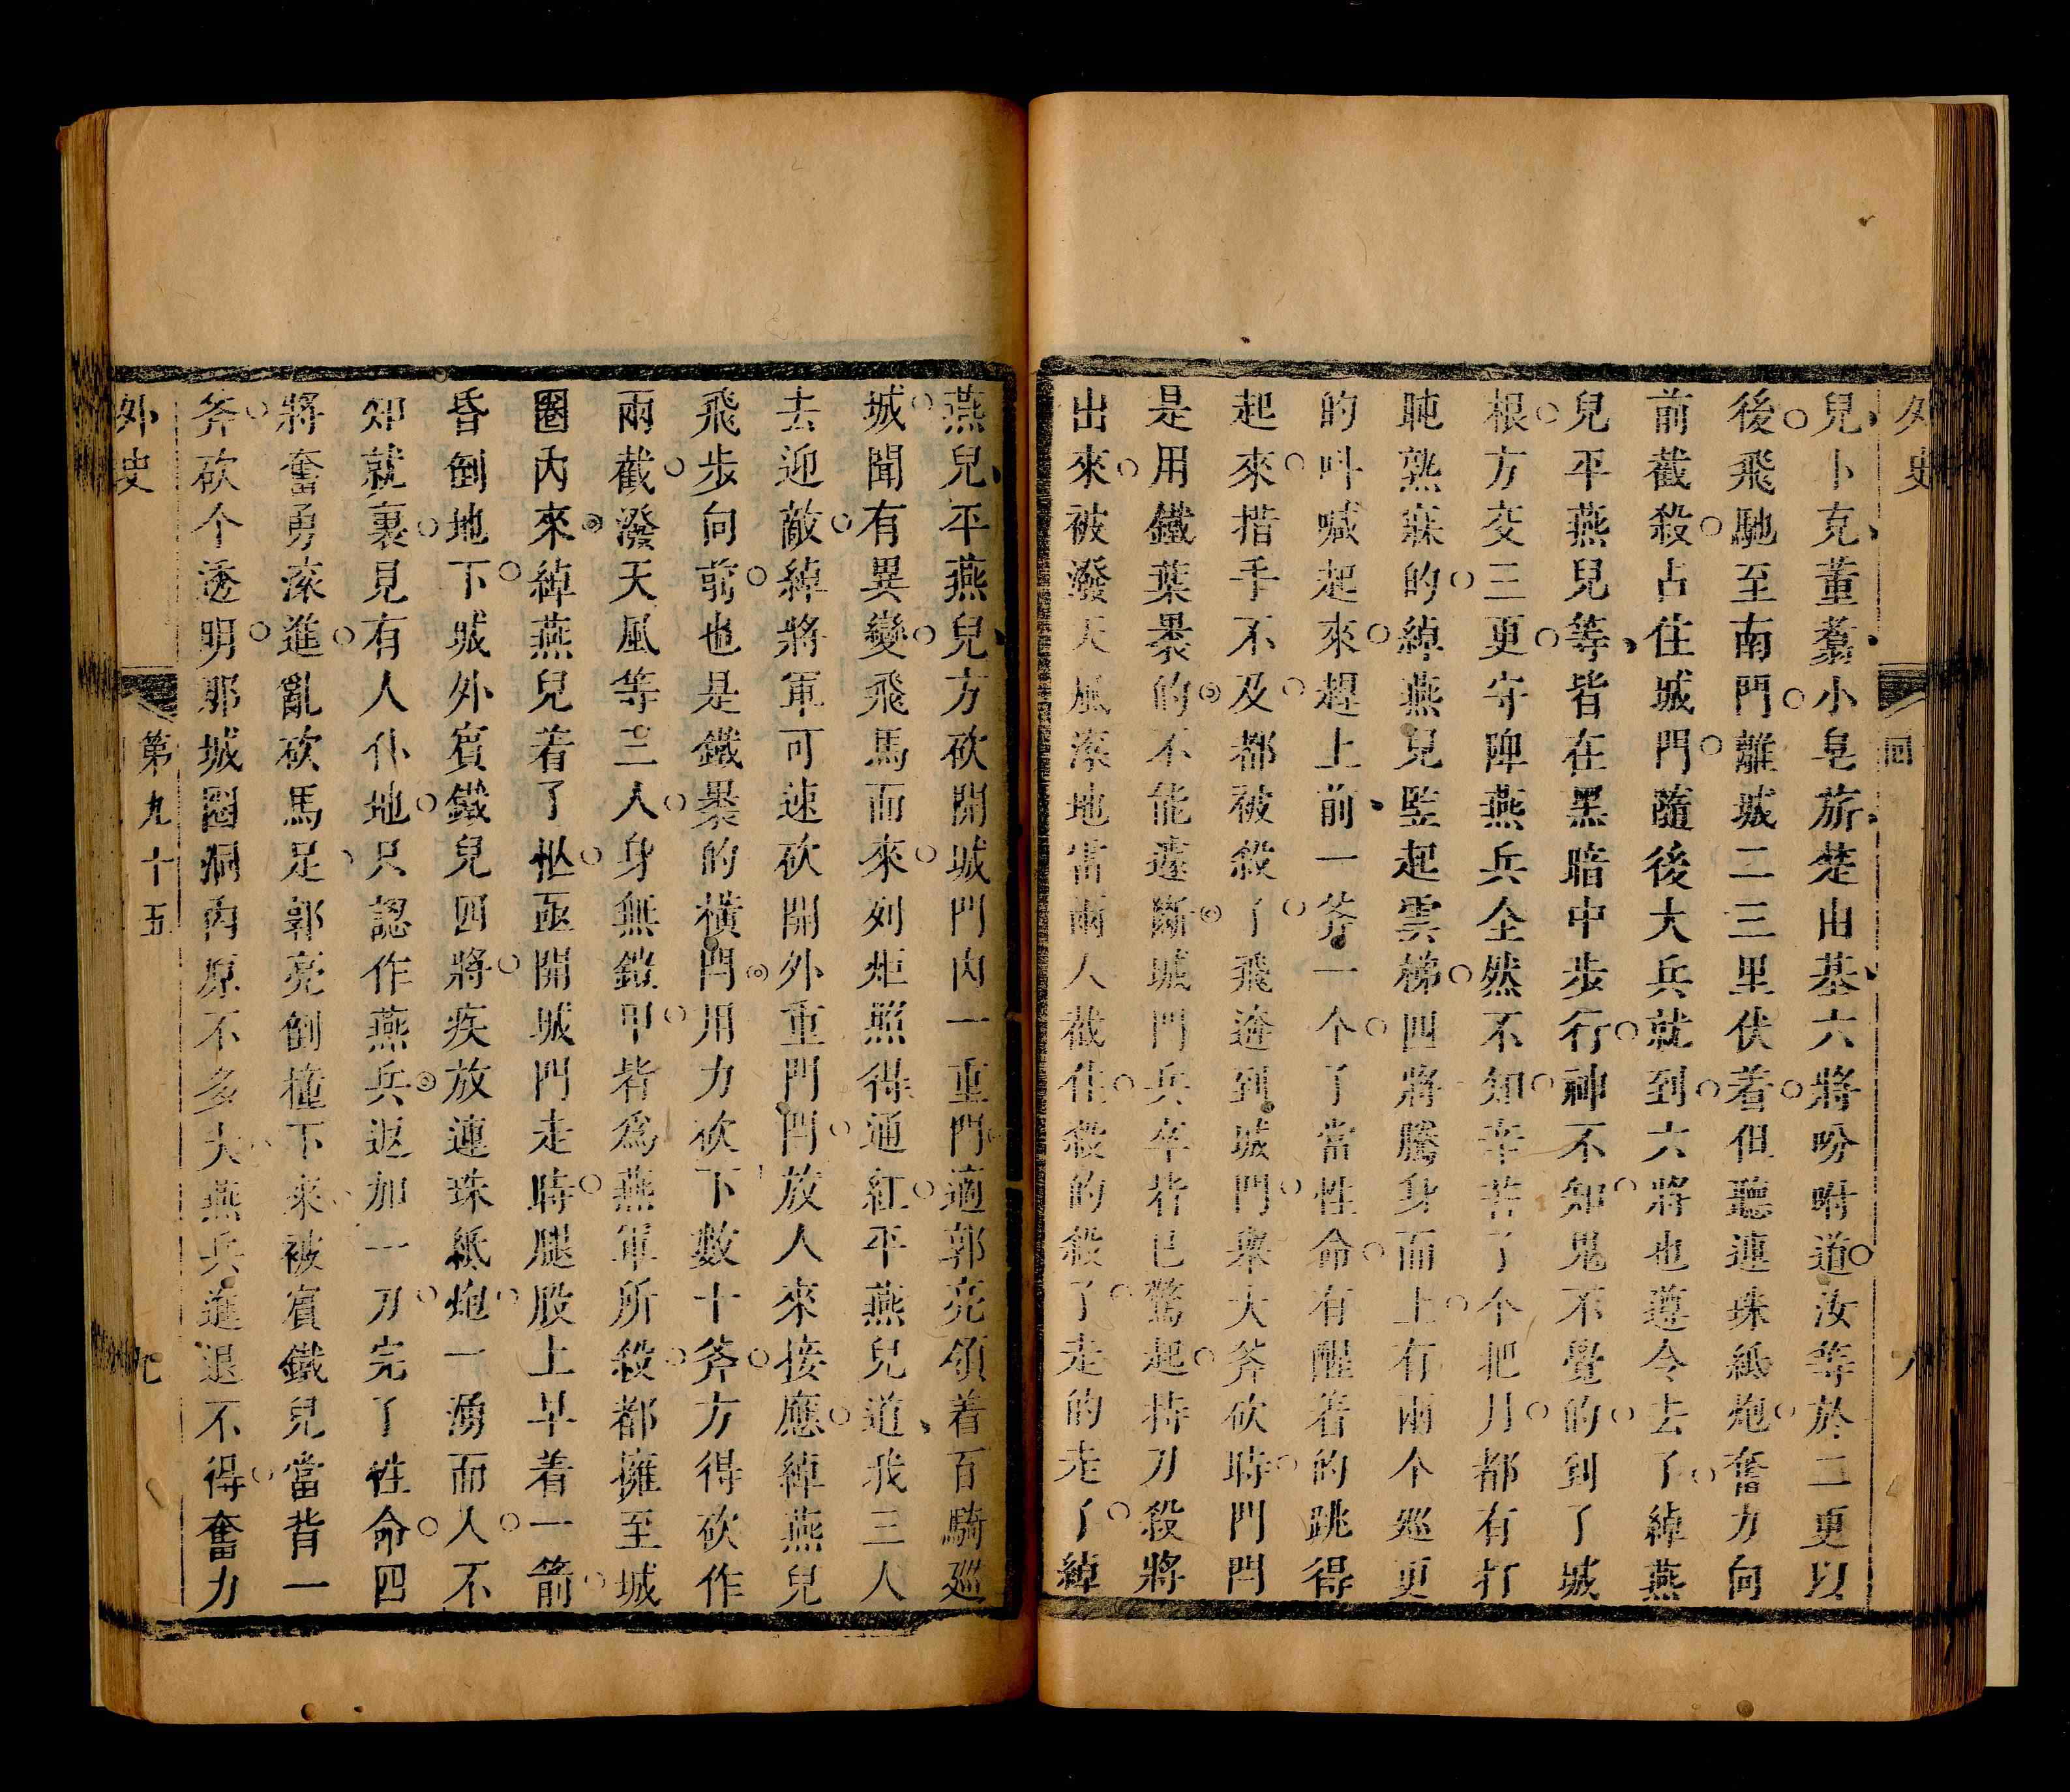 外史
回
八
兒卜克董翥小皂旂楚由基六將吩咐道汝等於二更以
後飛馳至南門離城二三里伏着但聽連珠紙炮奮力向
前截殺占住城門隨後大兵就到六將也遵令去了綽燕
兒平燕兒等皆在黑暗中步行神不知鬼不覺的到了城
根方交三更守陴燕兵全然不知辛苦了个把月都有打
盹熟寐的綽燕兒竪起雲梯四將騰身而上有兩个廵更
的叫喊起來趕上前一斧一个了當性命有醒着的跳得
起來措手不及都被殺了飛逩到城門舉大斧砍時門閂
是用鐵葉裹的不能遽斷城門兵卒皆已驚起持刀殺將
出來被潑天風滾地雷兩人截住殺的殺了走的走了綽
燕兒平燕兒方砍開城門內一重門適郭亮領着百騎廵
城聞有異變飛馬而來列炬照得通紅平燕兒道我三人
去迎敵綽將軍可速砍開外重門閂放人來接應綽燕兒
飛步向前也是鐵裹的橫閂用力砍下數十斧方得砍作
兩截潑天風等三人身無鎧甲皆爲燕軍所殺都擁至城
圈內來綽燕兒着了忙亟開城門走時腿股上早着一箭
昏倒地下城外賓鐵兒四將疾放連珠紙炮一湧而入不
知就裏見有人仆地只認作燕兵返加一刀完了性命四
將奮勇滾進亂砍馬足郭亮倒撞下來被賓鐵兒當背一
斧砍个透明那城圈洞內原不多大燕兵進退不得奮力
外史
第九十五
九